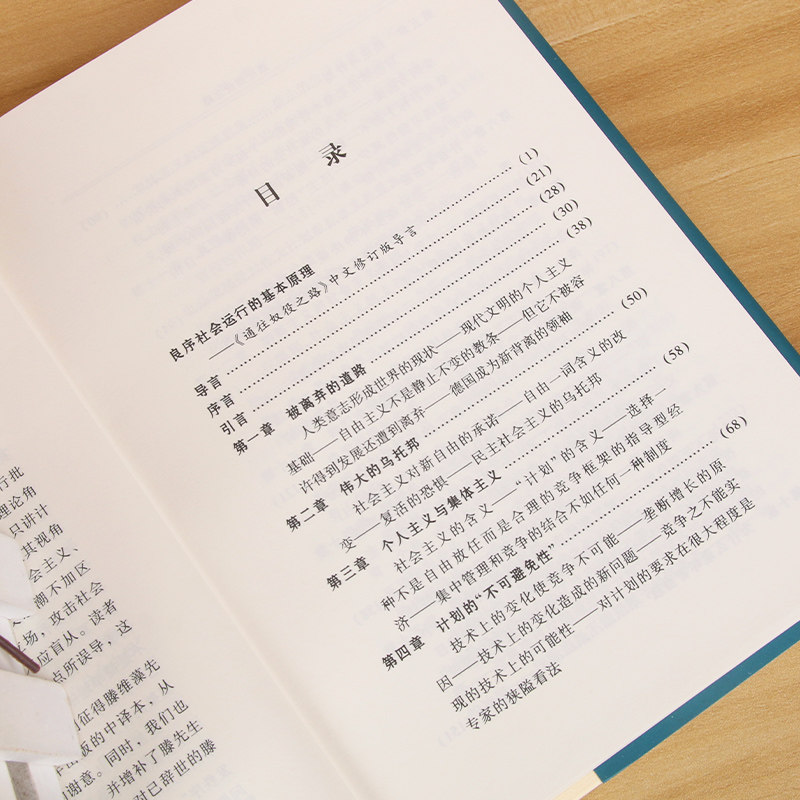 行批
理论角
只讲计
其视角
会主义、
潮不加区
场，攻击社会
应盲从。读者
点所误导，这
征得滕维藻先
版的中译本，从
谢意。同时，我们也
并增补了滕先生
对已辞世的滕
目 录
良序社会运行的基本原理
——《通往奴役之路》中文修订版导言 …………(1)
导言 …………(21)
序言 …………(28)
引言 …………(30)
第一章 被离弃的道路 …………(38)
人类意志形成世界的现状——现代文明的个人主义
基础——自由主义不是静止不变的教条——但它不被容
许得到发展还遭到离弃——德国成为新背离的领袖
第二章 伟大的乌托邦 …………(50)
社会主义对新自由的承诺——自由一词含义的改
变——复活的恐惧——民主社会主义的乌托邦
第三章 个人主义与集体主义 …………(58)
社会主义的含义——“计划”的含义——选择—
种不是自由放任而是合理的竞争框架的指导型经
济——集中管理和竞争的结合不如任何一种制度
第四章 计划的“不可避免性” …………(68)
技术上的变化使竞争不可能——垄断增长的原
因——技术上的变化造成的新问题——竞争之不能实
现的技术上的可能性——对计划的要求在很大程度是
专家的狭隘看法